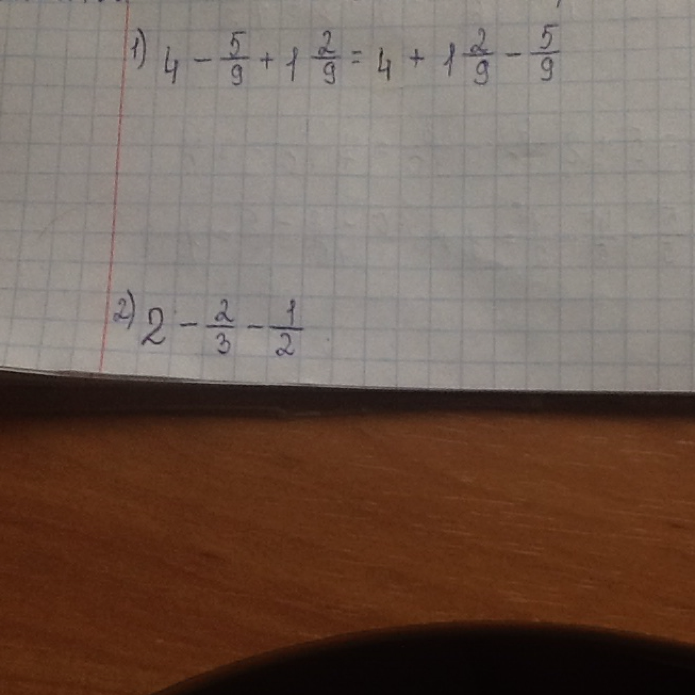 1) 4 - 5/9 + 1 2/9 = 4 + 1 2/9 - 5/9
2) 2 - 2/3 - 1/2